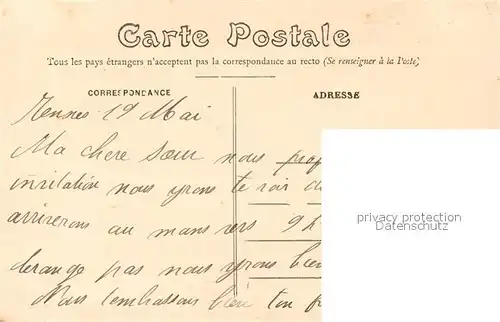 Carte Postale
Tous les pays étrangers n'acceptent pas la correspondance au recto (Se renseigner à la Poste)
CORRESPONDANCE
ADRESSE
Rennes 19 Mai
Ma chere sœur nous prof
invitation nous yrons te voir di
arriverons au mans vers 9h
derange pas nous yrons bien
Nous t'embrassons bien ton fr
privacy protection
Datenschutz